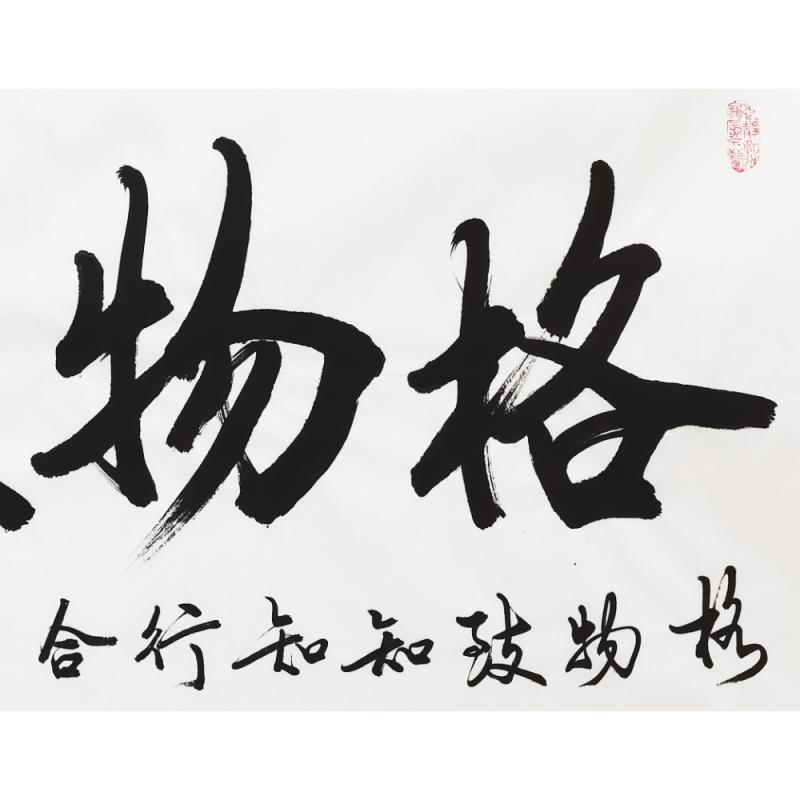 格物
格物致知知行合